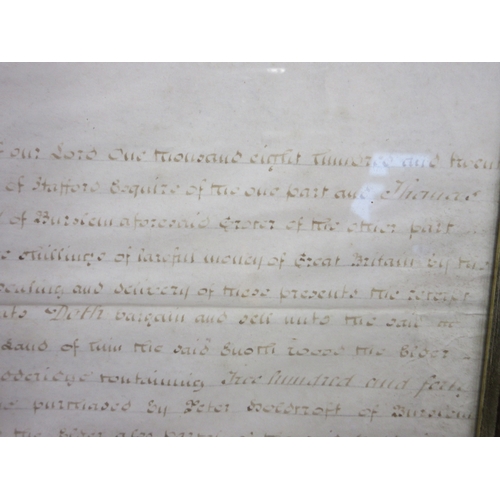 f our Lord One thousand eight hundred and twen
of Stafford Esquire of the one part and Thomas
of Burslem aforesaid Grocer of the other part
e shillings of lawful money of Great Britain by the
sealing and delivery of these presents the receipt
Doth bargain and sell unto the said
Land of him the said Enoch Wood the Elder
containing Five hundred and forty
purchased by Peter Holdcroft of Burslem
the